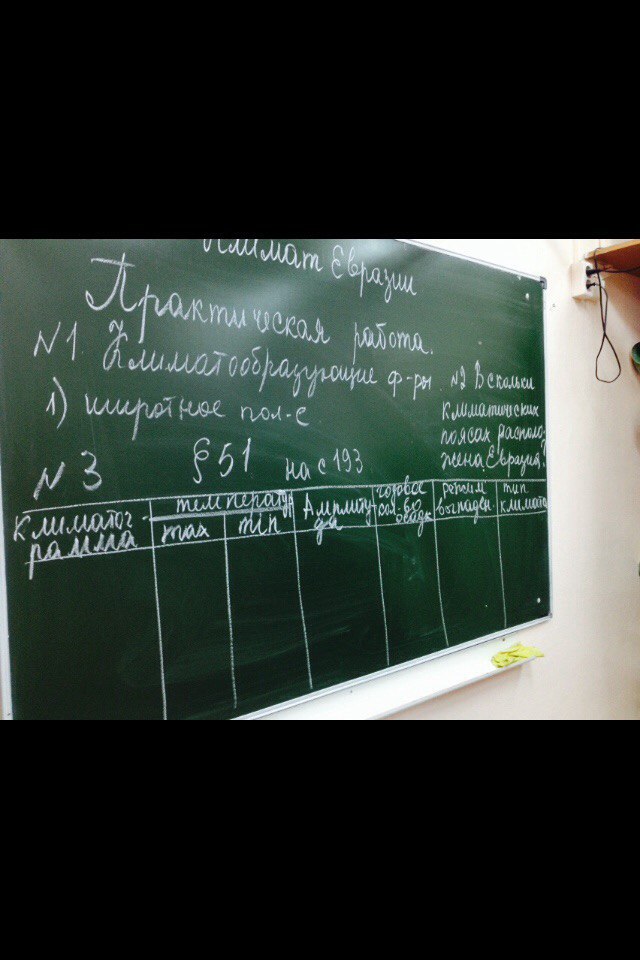 Климат Евразии
Практическая работа.
№1 Климатообразующие ф-ры
1) широтное пол-е
№2 В скольки
климатических
поясах располо-
жена Евразия?
№3 §51 на с 193
климатог
рамма
температ
max
min
Амплиту
да
годовое
кол-во
осадк
режим
выпаден
тип
климата